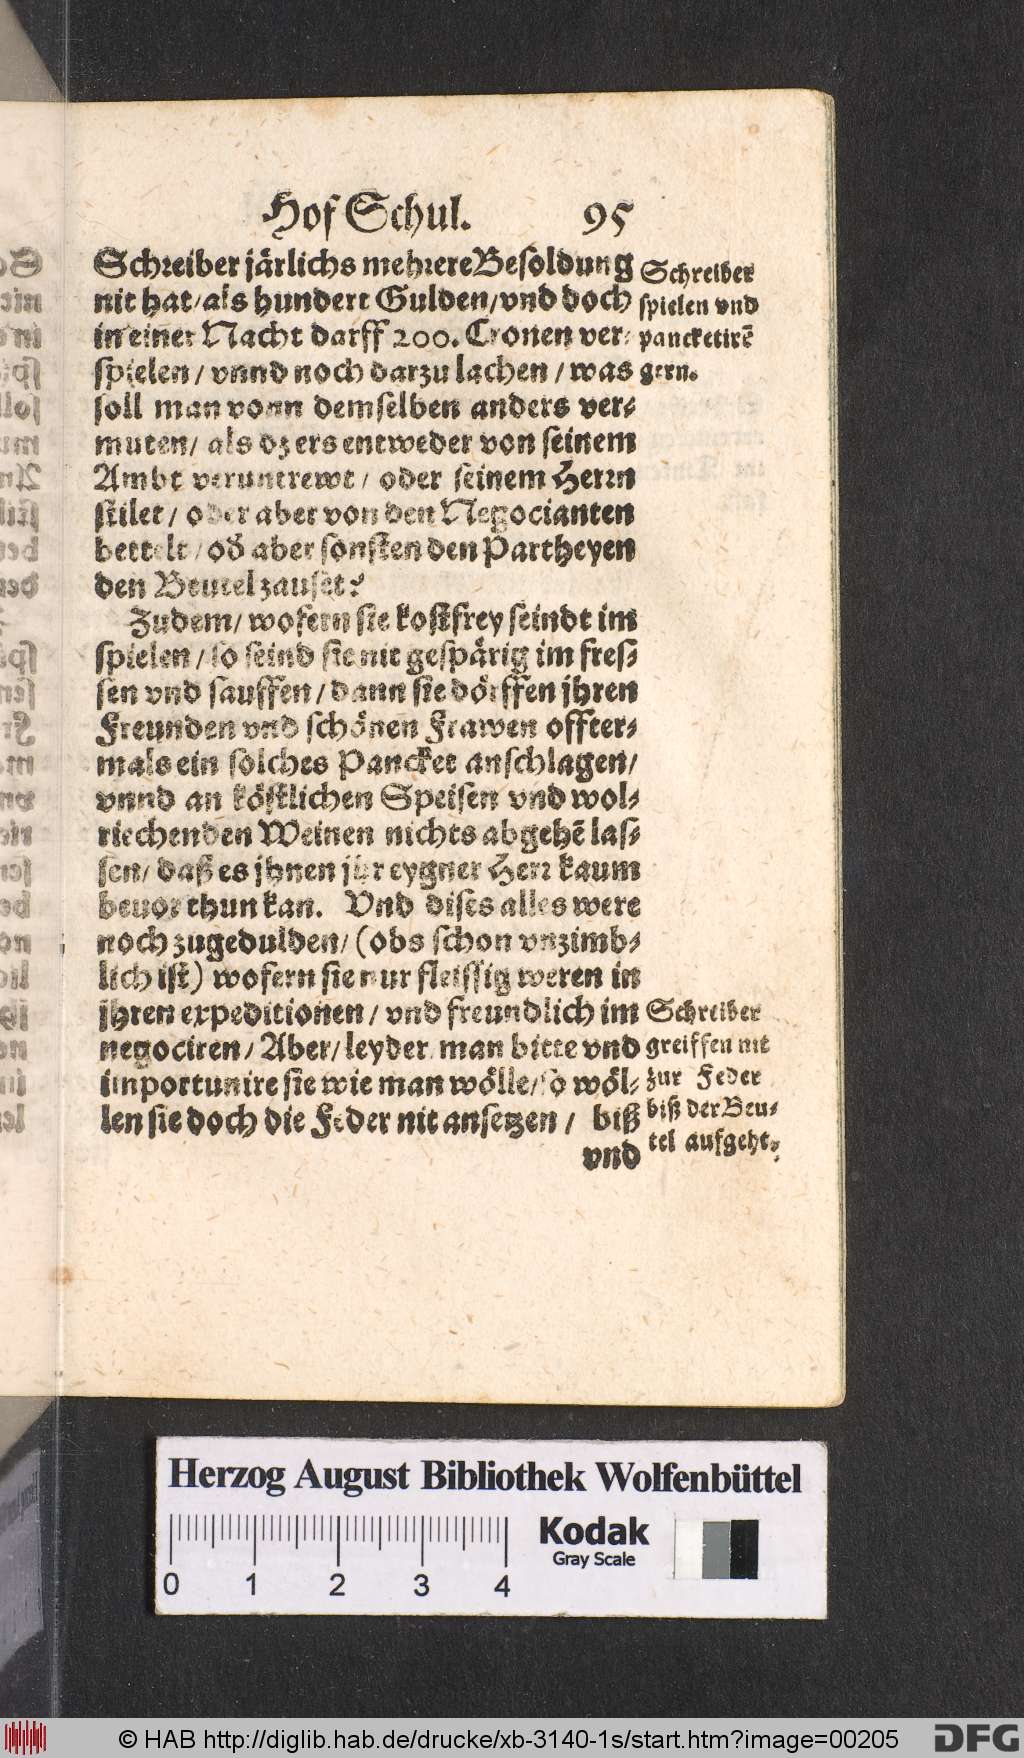 Hof Schul. 95
Schreiber järlichs mehrere Besoldung
nit hat/als hundert Gulden/vnd doch
in einer Nacht darff 200. Cronen ver-
spielen / vnnd noch darzu lachen / was
soll man vonn demselben anders ver-
muten/ als dz ers entweder von seinem
Ambt veruntrewt / oder seinem Herrn
stilet / oder aber von den Negocianten
bettelt / od̃ aber sonsten den Partheyen
den Beutel zauset?
Schreiber
spielen vnd
pancketirẽ
gern.
Zudem/ wofern sie kostfrey seindt im
spielen / so seind sie nit gespärig im fres-
sen vnd sauffen / dann sie dörffen jhren
Freunden vnd schönen Frawen offter-
mals ein solches Pancket anschlagen/
vnnd an köstlichen Speisen vnd wol-
riechenden Weinen nichts abgehẽ las-
sen/ daß es jhnen jhr eygner Herr kaum
beuor thun kan. Vnd dises alles were
noch zugedulden/ (obs schon vnzimb-
lich ist) wofern sie nur fleissig weren in
jhren expeditionen / vnd freundlich im
negociren/ Aber/ leyder man bitte vnd
importunire sie wie man wölle/so wöl-
len sie doch die Feder nit ansetzen / biß
vnd
Schreiber
greiffen nit
zur Feder
biß der Beu-
tel aufgeht.
Herzog August Bibliothek Wolfenbüttel
Kodak
Gray Scale
0 1 2 3 4
© HAB http://diglib.hab.de/drucke/xb-3140-1s/start.htm?image=00205
DFG